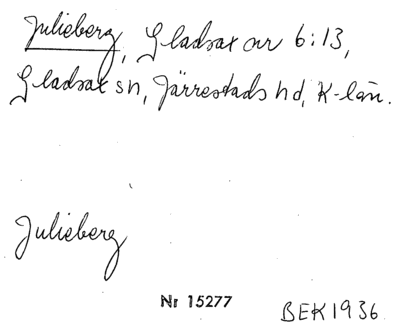 Julieberg, Gladsax nr 6:13,
Gladsax sn, Järrestads hd, K-län.
Julieberg
Nr 15277
BEK 1936